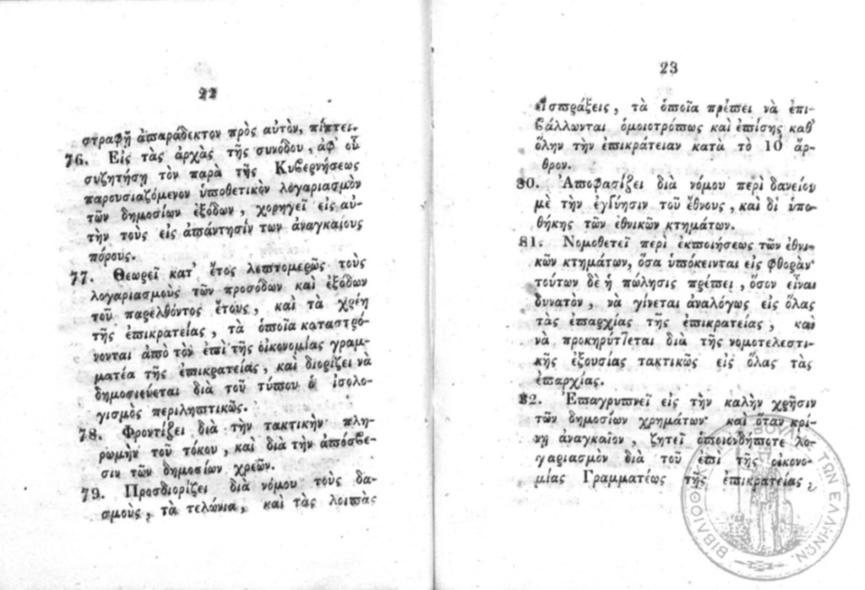 22
στραφῇ ἀπαράδεκτον πρὸς αὐτὸν, πίπτει.
76. Εἰς τὰς ἀρχὰς τῆς συνόδου, ἀφ' οὗ
συζητήσῃ τὸν παρὰ τῆς Κυβερνήσεως
παρουσιαζόμενον ὑποθετικὸν λογαριασμὸν
τῶν δημοσίων ἐξόδων, χορηγεῖ εἰς αὐ-
τὴν τοὺς εἰς ἀπάντησίν των ἀναγκαίους
πόρους.
77. Θεωρεῖ κατ' ἔτος λεπτομερῶς τοὺς
λογαριασμοὺς τῶν προσόδων καὶ ἐξόδων
τοῦ παρελθόντος ἔτους, καὶ τὰ χρέη
τῆς ἐπικρατείας, τὰ ὁποῖα καταστρό-
νονται ἀπὸ τὸν ἐπὶ τῆς οἰκονομίας γραμ-
ματέα τῆς ἐπικρατείας, καὶ διορίζει νὰ
δημοσιεύεται διὰ τοῦ τύπου ὁ ἰσολο-
γισμὸς περιληπτικῶς.
78. Φροντίζει διὰ τὴν τακτικὴν πλη-
ρωμὴν τοῦ τόκου, καὶ διὰ τὴν ἀπόσβε-
σιν τῶν δημοσίων χρεῶν.
79. Προσδιορίζει διὰ νόμου τοὺς δα-
σμοὺς, τὰ τελώνια, καὶ τὰς λοιπὰς
23
εἰσπράξεις, τὰ ὁποῖα πρέπει νὰ ἐπι-
βάλλωνται ὁμοιοτρόπως καὶ ἐπίσης καθ'
ὅλην τὴν ἐπικράτειαν κατὰ τὸ 10 ἄρ-
θρον.
80. Ἀποφασίζει διὰ νόμου περὶ δανείου
μὲ τὴν ἐγγύησιν τοῦ ἔθνους, καὶ δι' ὑπο-
θήκης τῶν ἐθνικῶν κτημάτων.
81. Νομοθετεῖ περὶ ἐκποιήσεως τῶν ἐθνι-
κῶν κτημάτων, ὅσα ὑπόκεινται εἰς φθοράν·
τούτων δὲ ἡ πώλησις πρέπει, ὅσον εἶναι
δυνατὸν, νὰ γίνεται ἀναλόγως εἰς ὅλας
τὰς ἐπαρχίας τῆς ἐπικρατείας, καὶ
νὰ προκηρύττεται διὰ τῆς νομοτελεστι-
κῆς ἐξουσίας τακτικῶς εἰς ὅλας τὰς
ἐπαρχίας.
82. Ἐπαγρυπνεῖ εἰς τὴν καλὴν χρῆσιν
τῶν δημοσίων χρημάτων· καὶ ὅταν κρί-
νῃ ἀναγκαῖον, ζητεῖ ὁποιονδήποτε λο-
γαριασμὸν διὰ τοῦ ἐπὶ τῆς οἰκονο-
μίας Γραμματέως τῆς ἐπικρατείας,
ΤΩΝ ΕΛΛΗΝΩΝ